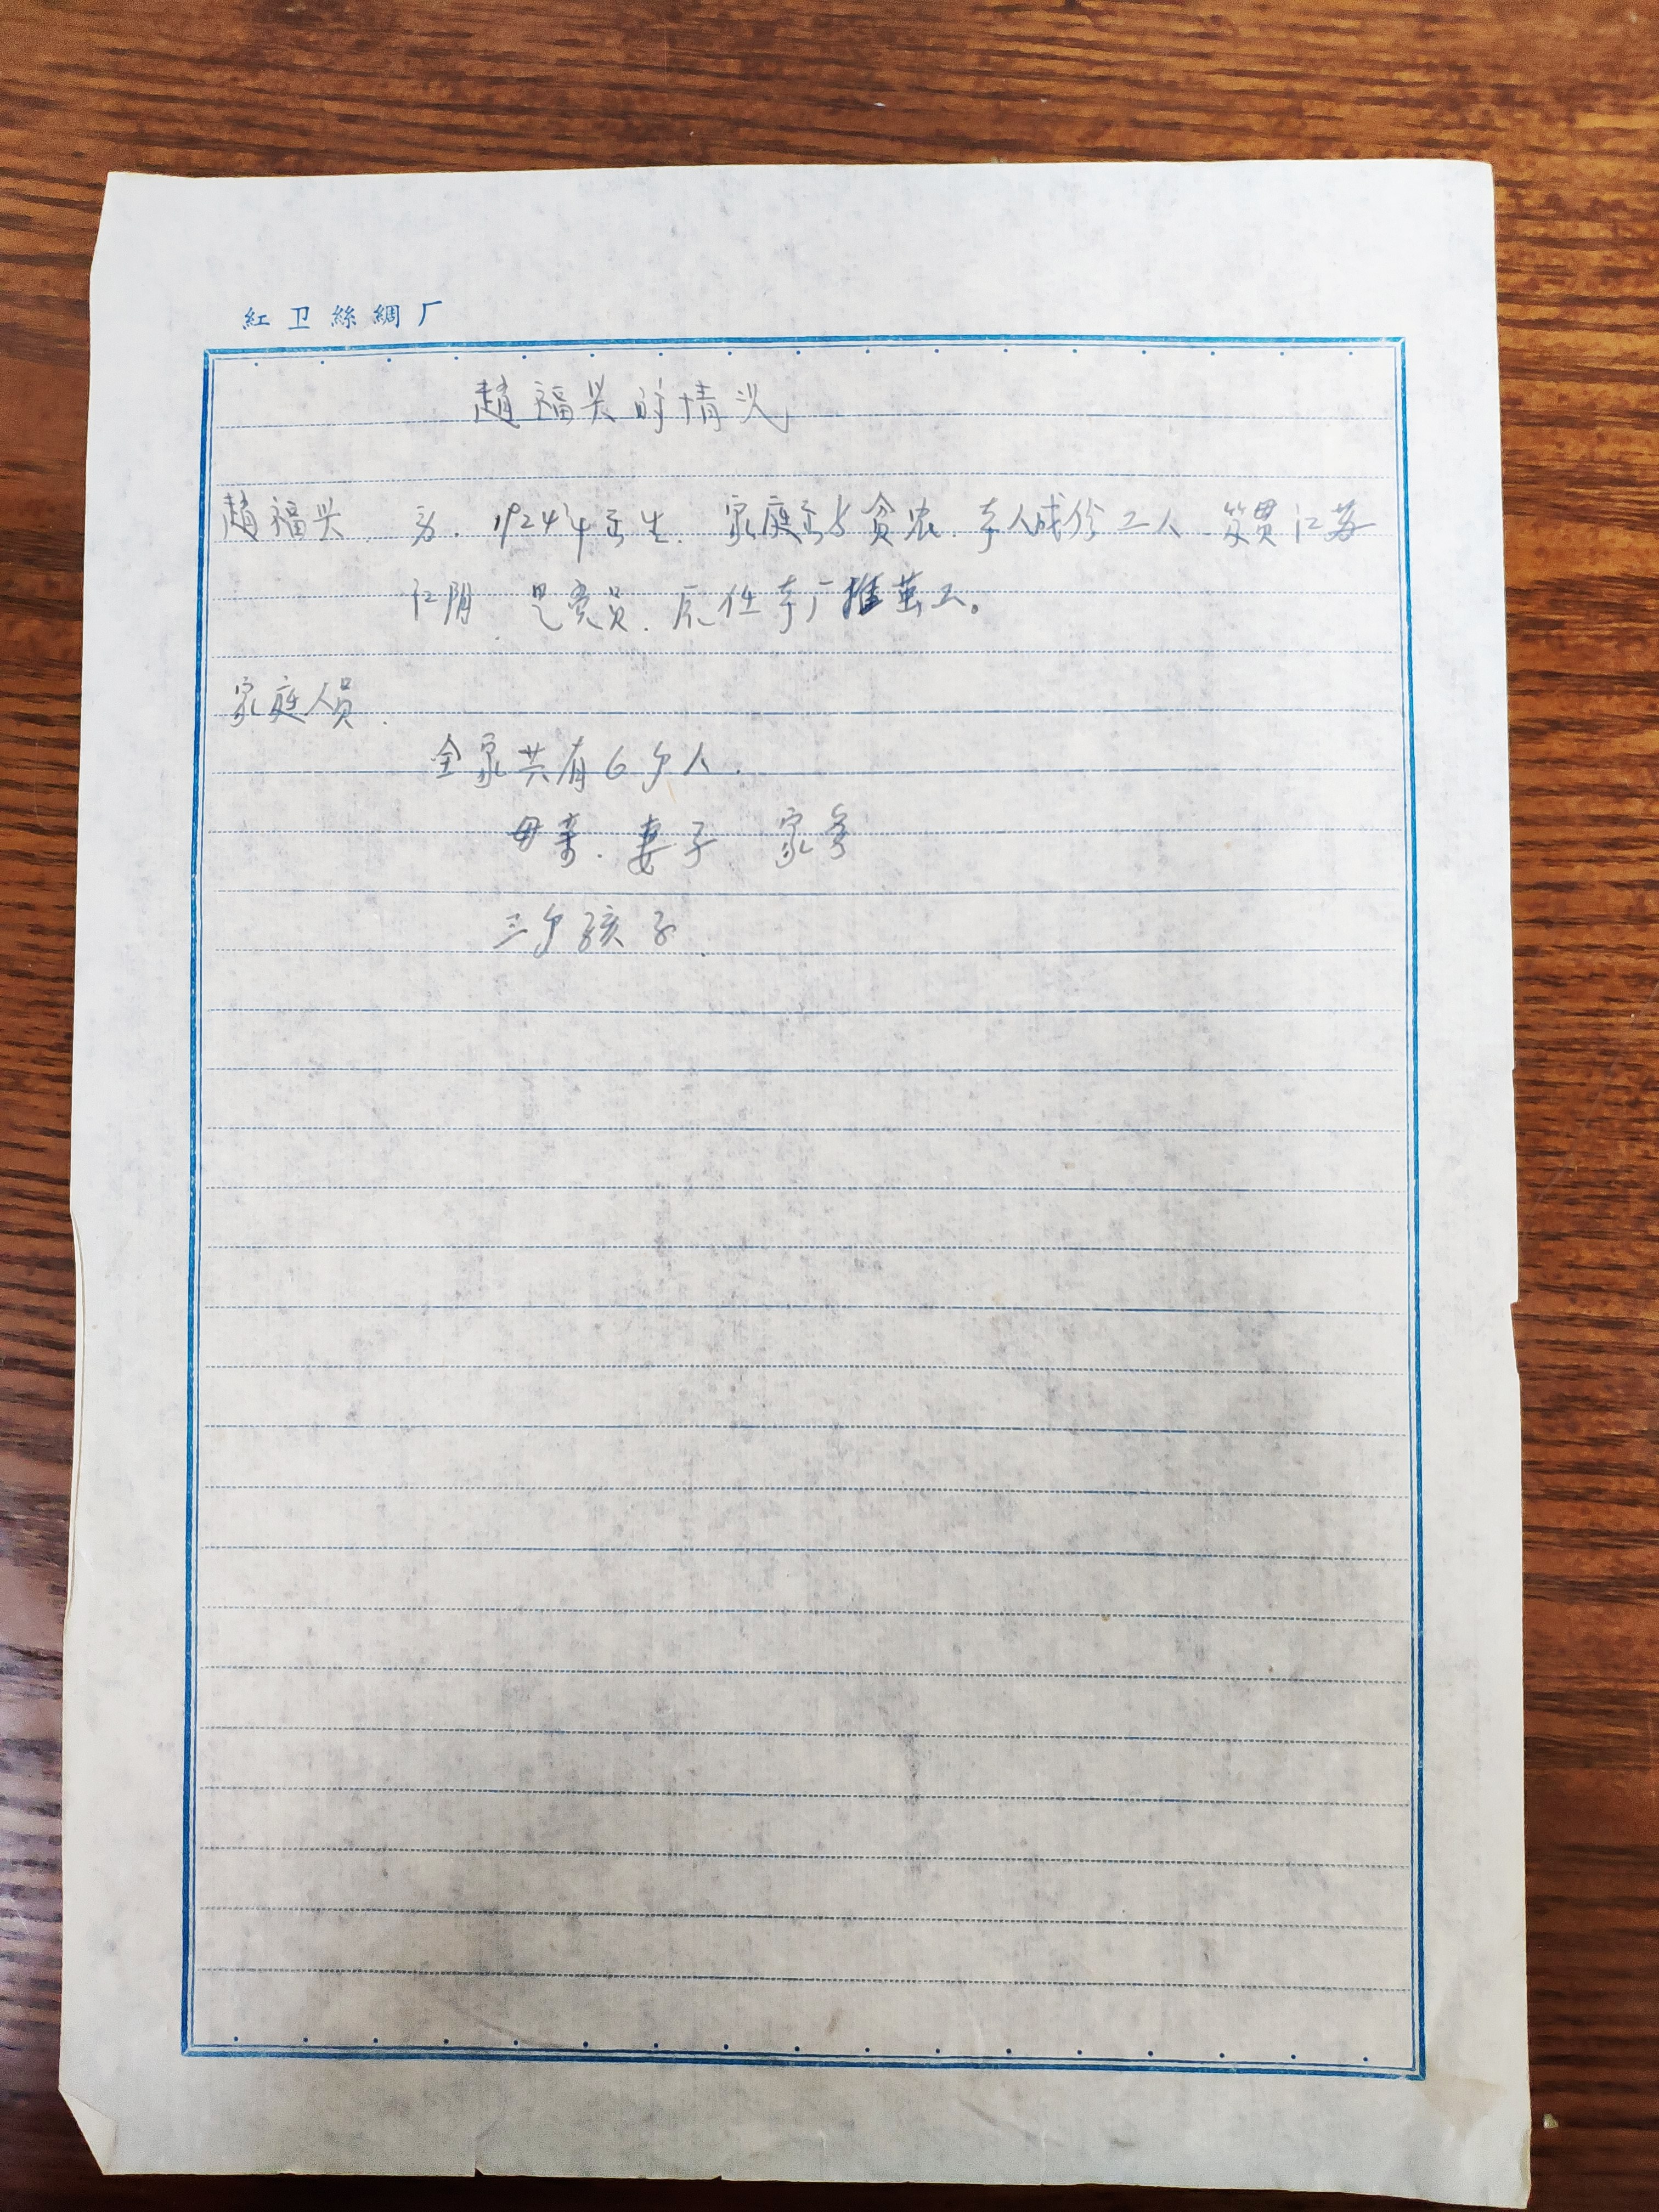 紅卫絲綢厂
趙福兴的情况
趙福兴，男．1924年出生．家庭出身贫农．本人成份工人．笈贯江苏
江阴．是党员．原任本厂推茧工。
家庭人员．
全家共有6个人．
母亲．妻子．家务
三个孩子．